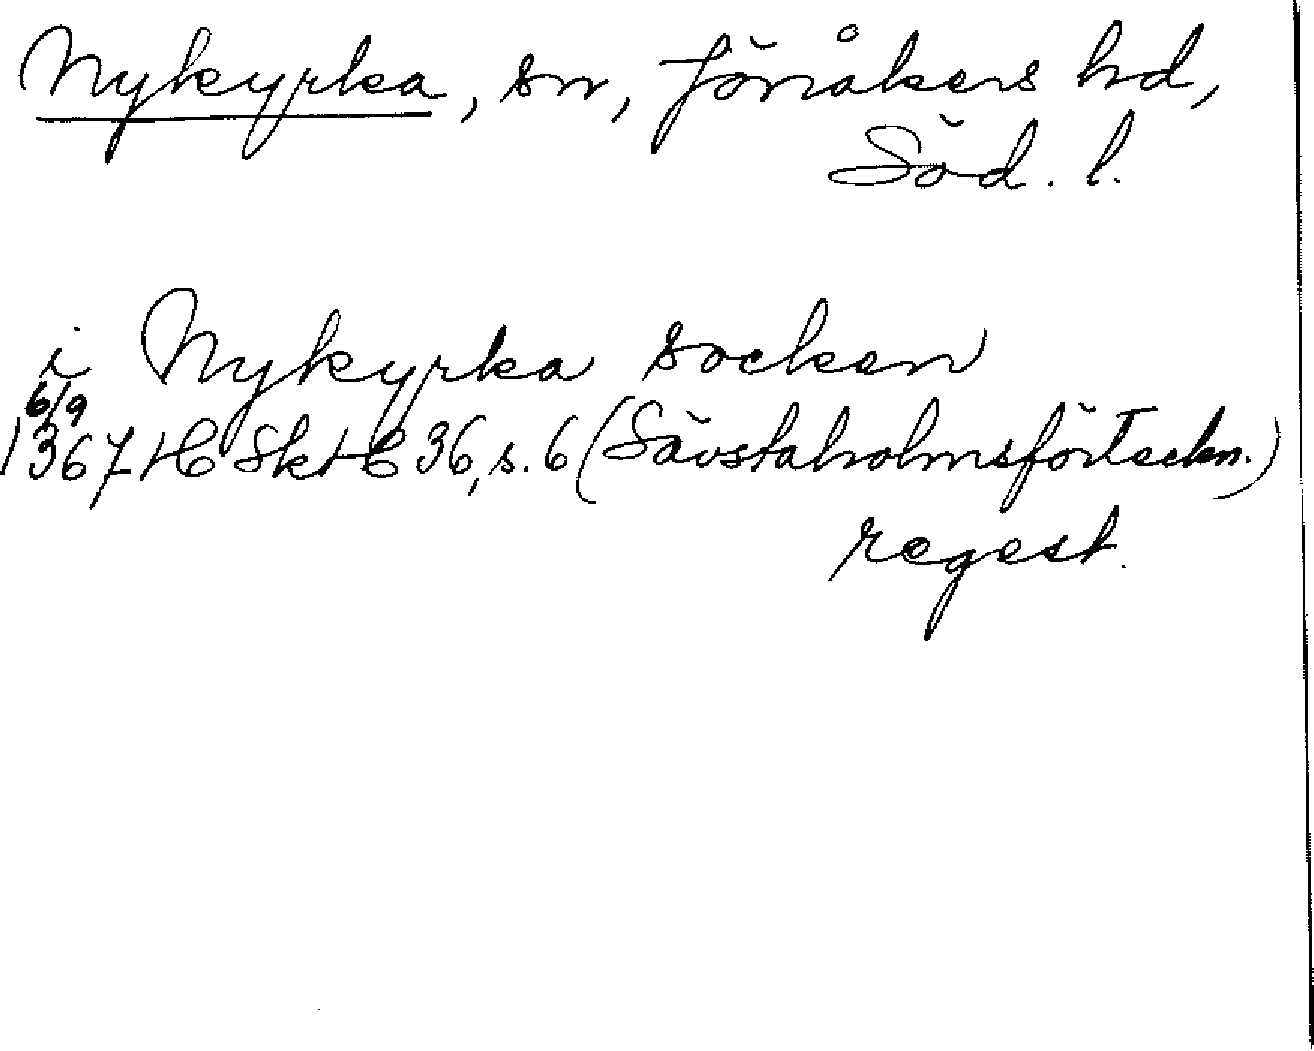 Nykyrka, sn, Jönåkers hd,
Söd. l.
i Nykyrka socken
6/9
1367 HC Skt HC 36, s. 6 (Sävstaholmsförteckn.)
regest.